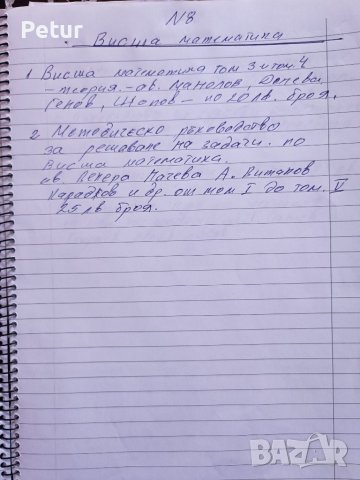 Petur
N8
Висша математика
1 Висша математика том 3 и том 4
- теория. - ав. Манолов, Денева,
Генов, Щапов - по 20 лв. броя.
2 Методическо ръководство
за решаване на задачи по
Висша математика.
ав Пенера Мачева А. Витанов
Карадков и др. от том I до том. V
25 лв броя.
BAZAR